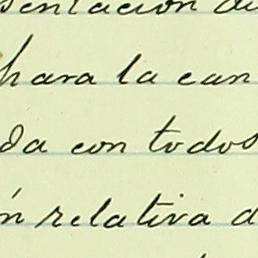 sentación de
para la can
da con todos
ón relativa d